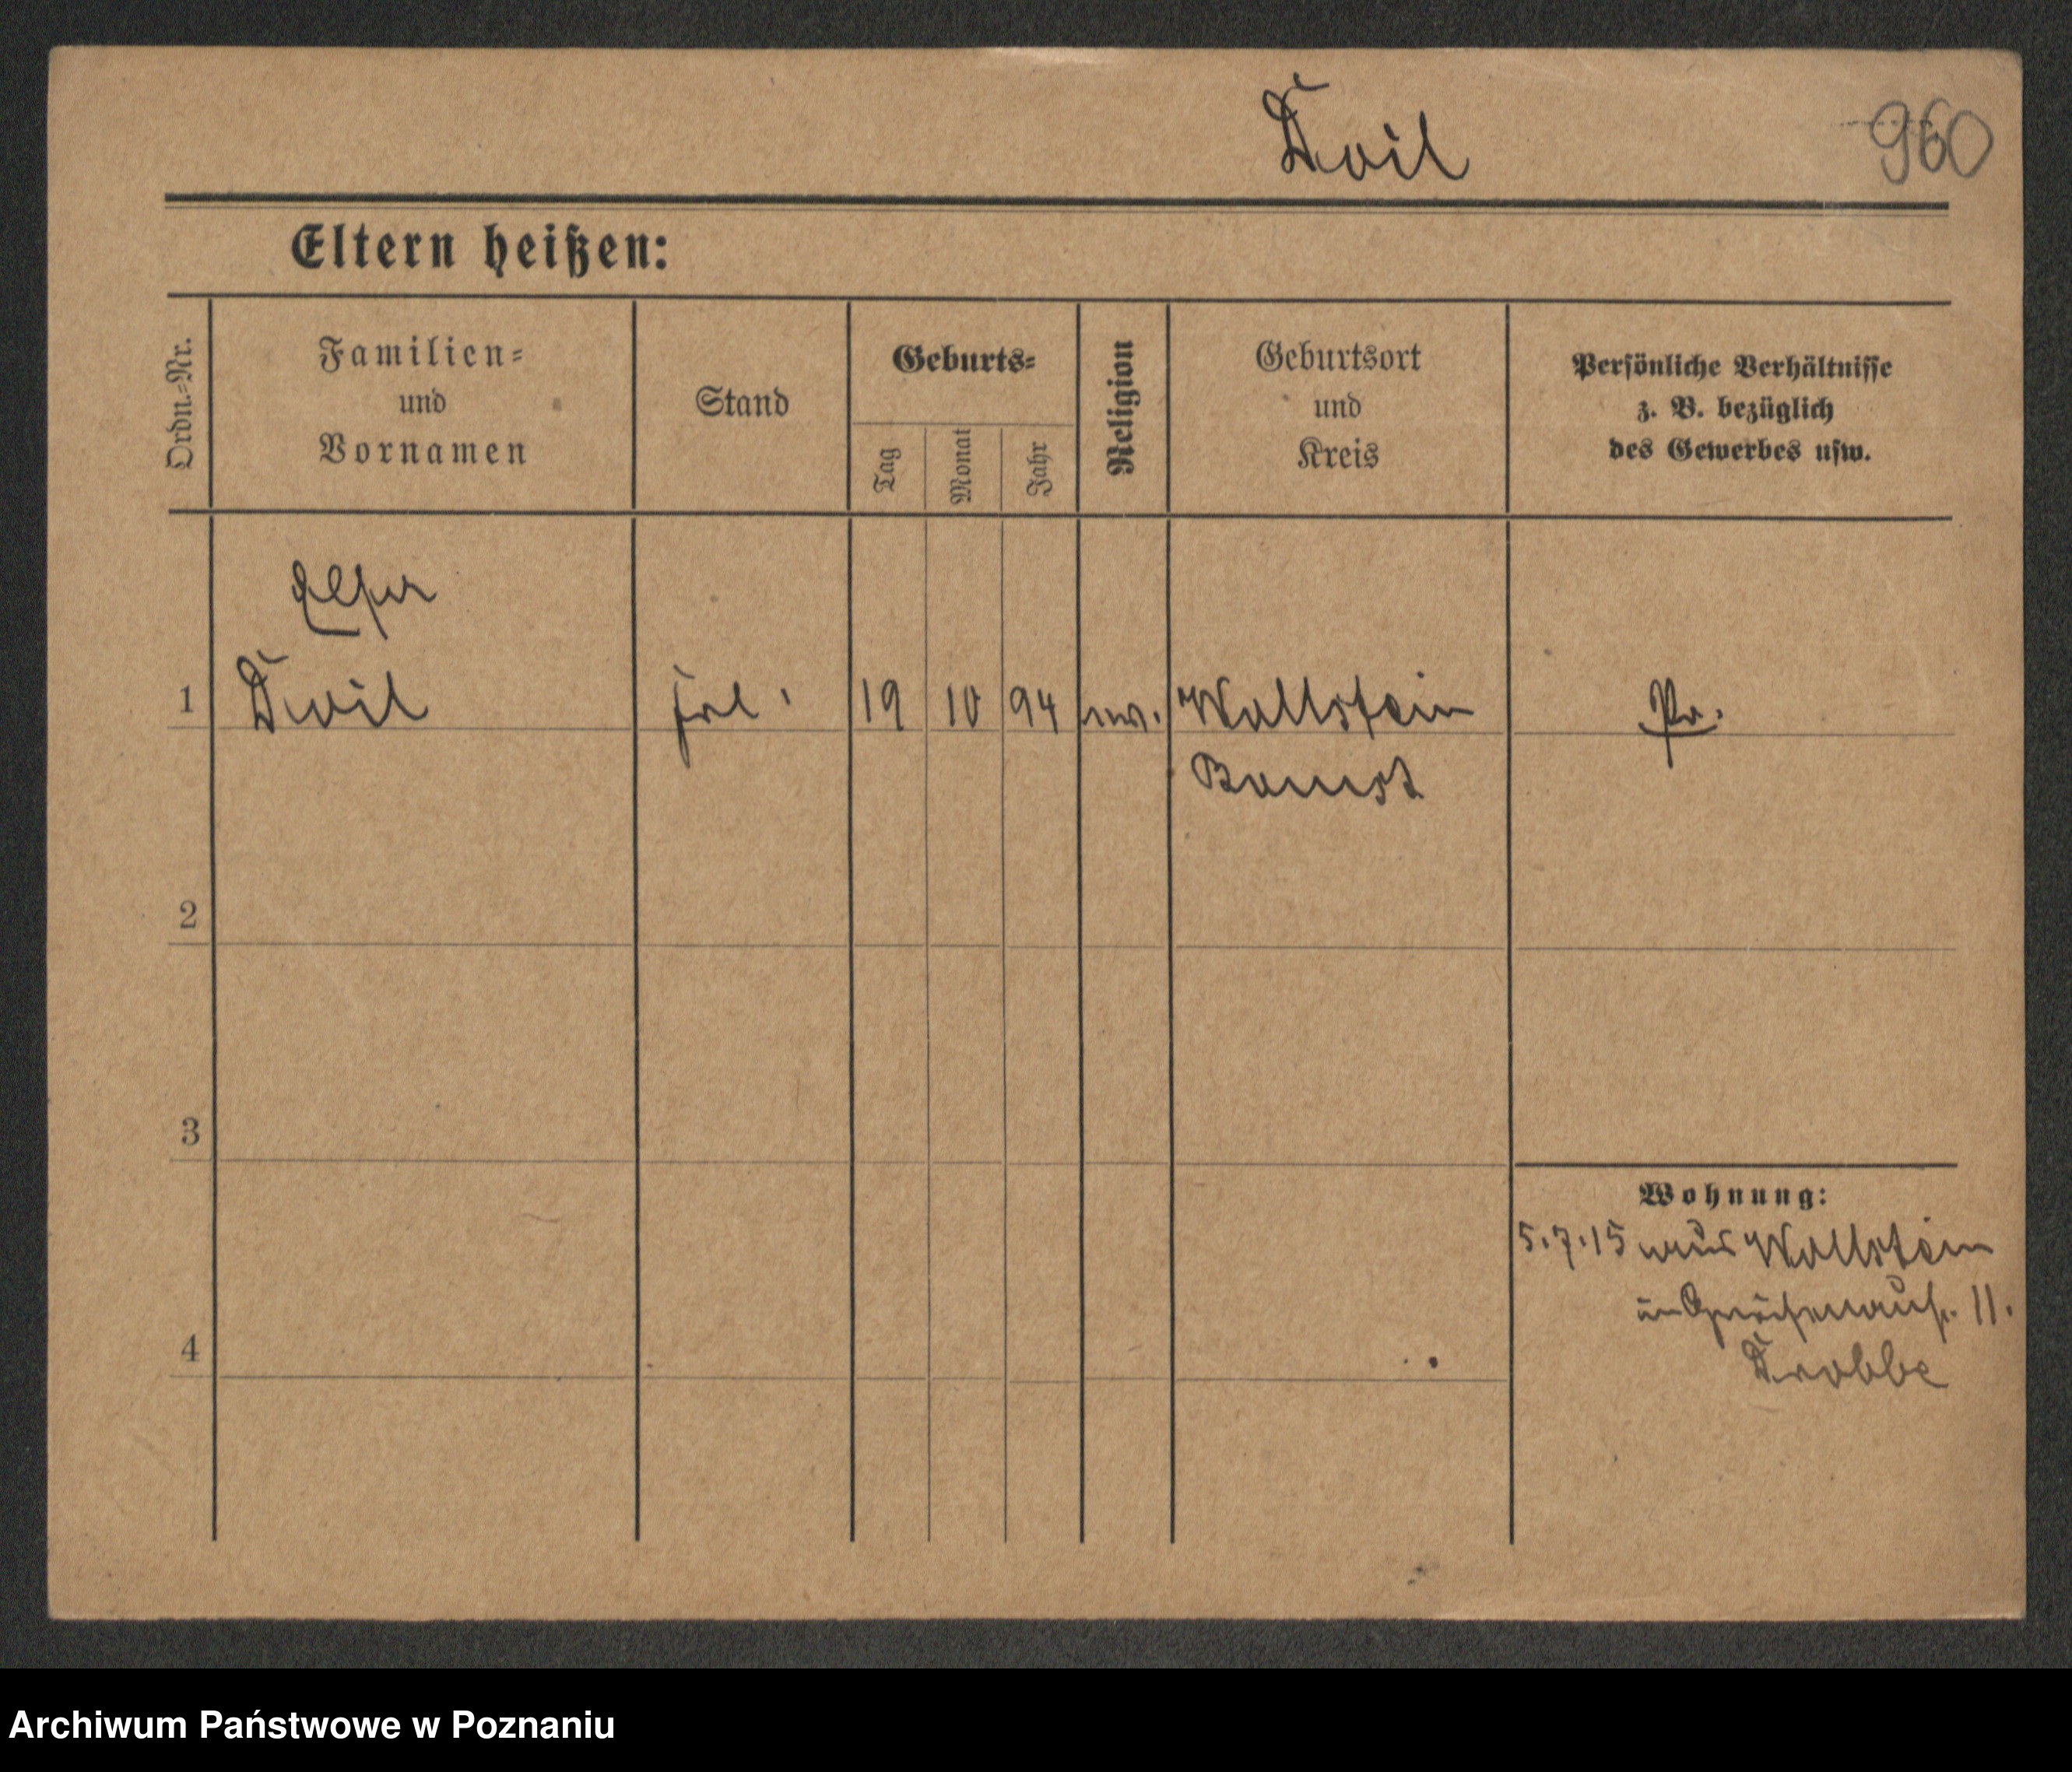 960
Eltern heißen:
Ordn.=Nr.
Familien=
und
Vornamen
Stand
Geburts=
Tag
Monat
Jahr
Religion
Geburtsort
und
Kreis
Persönliche Verhältnisse
z. B. bezüglich
des Gewerbes usw.
1
frl.
19
10
94
Wollstein
Pr.
Bomst
2
3
Wohnung:
5.7.15 aus Wollstein
11.
4
Archiwum Państwowe w Poznaniu